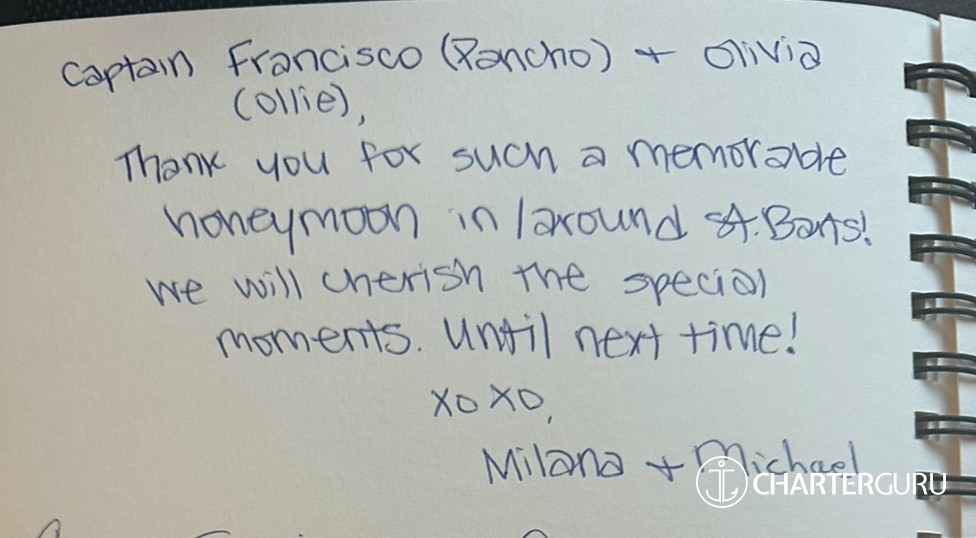 Captain Francisco (Pancho) + Olivia
(Ollie),
Thank you for such a memorable
honeymoon in/around St. Barts!
We will cherish the special
moments. Until next time!
XOXO,
Milana + Michael
CHARTERGURU